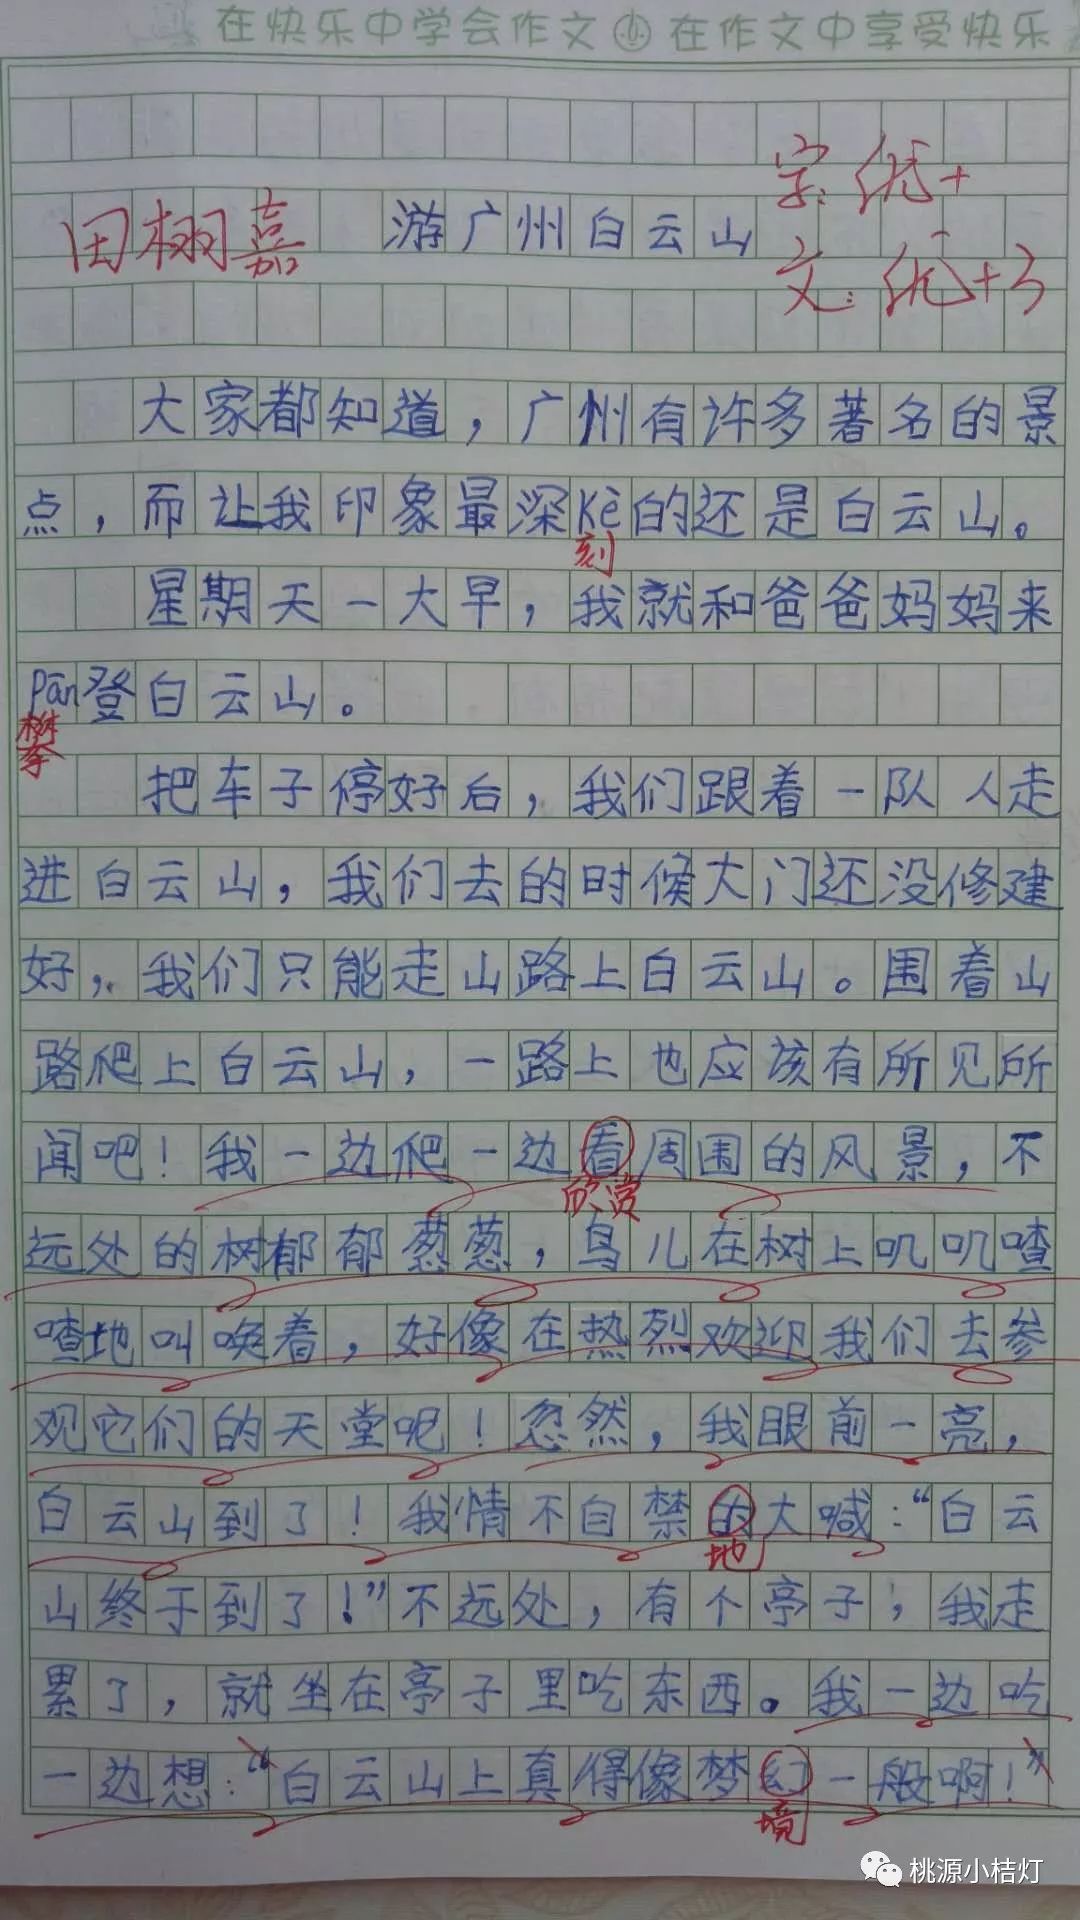 在快乐中学会作文 在作文中享受快乐
字：优+
田栩嘉 游广州白云山
文：优+3
大家都知道，广州有许多著名的景
点，而让我印象最深Kè的还是白云山。
刻
星期天一大早，我就和爸爸妈妈来
pān登白云山。
攀
把车子停好后，我们跟着一队人走
进白云山，我们去的时候大门还没修建
好，我们只能走山路上白云山。围着山
路爬上白云山，一路上也应该有所见所
闻吧！我一边爬一边看周围的风景，不
欣赏
远处的树郁郁葱葱，鸟儿在树上叽叽喳
喳地叫唤着，好像在热烈欢迎我们去参
观它们的天堂呢！忽然，我眼前一亮，
白云山到了！我情不自禁的大喊：“白云
地
山终于到了！”不远处，有个亭子，我走
累了，就坐在亭子里吃东西。我一边吃
一边想：“白云山上真得像梦幻一般啊！”
境
桃源小桔灯